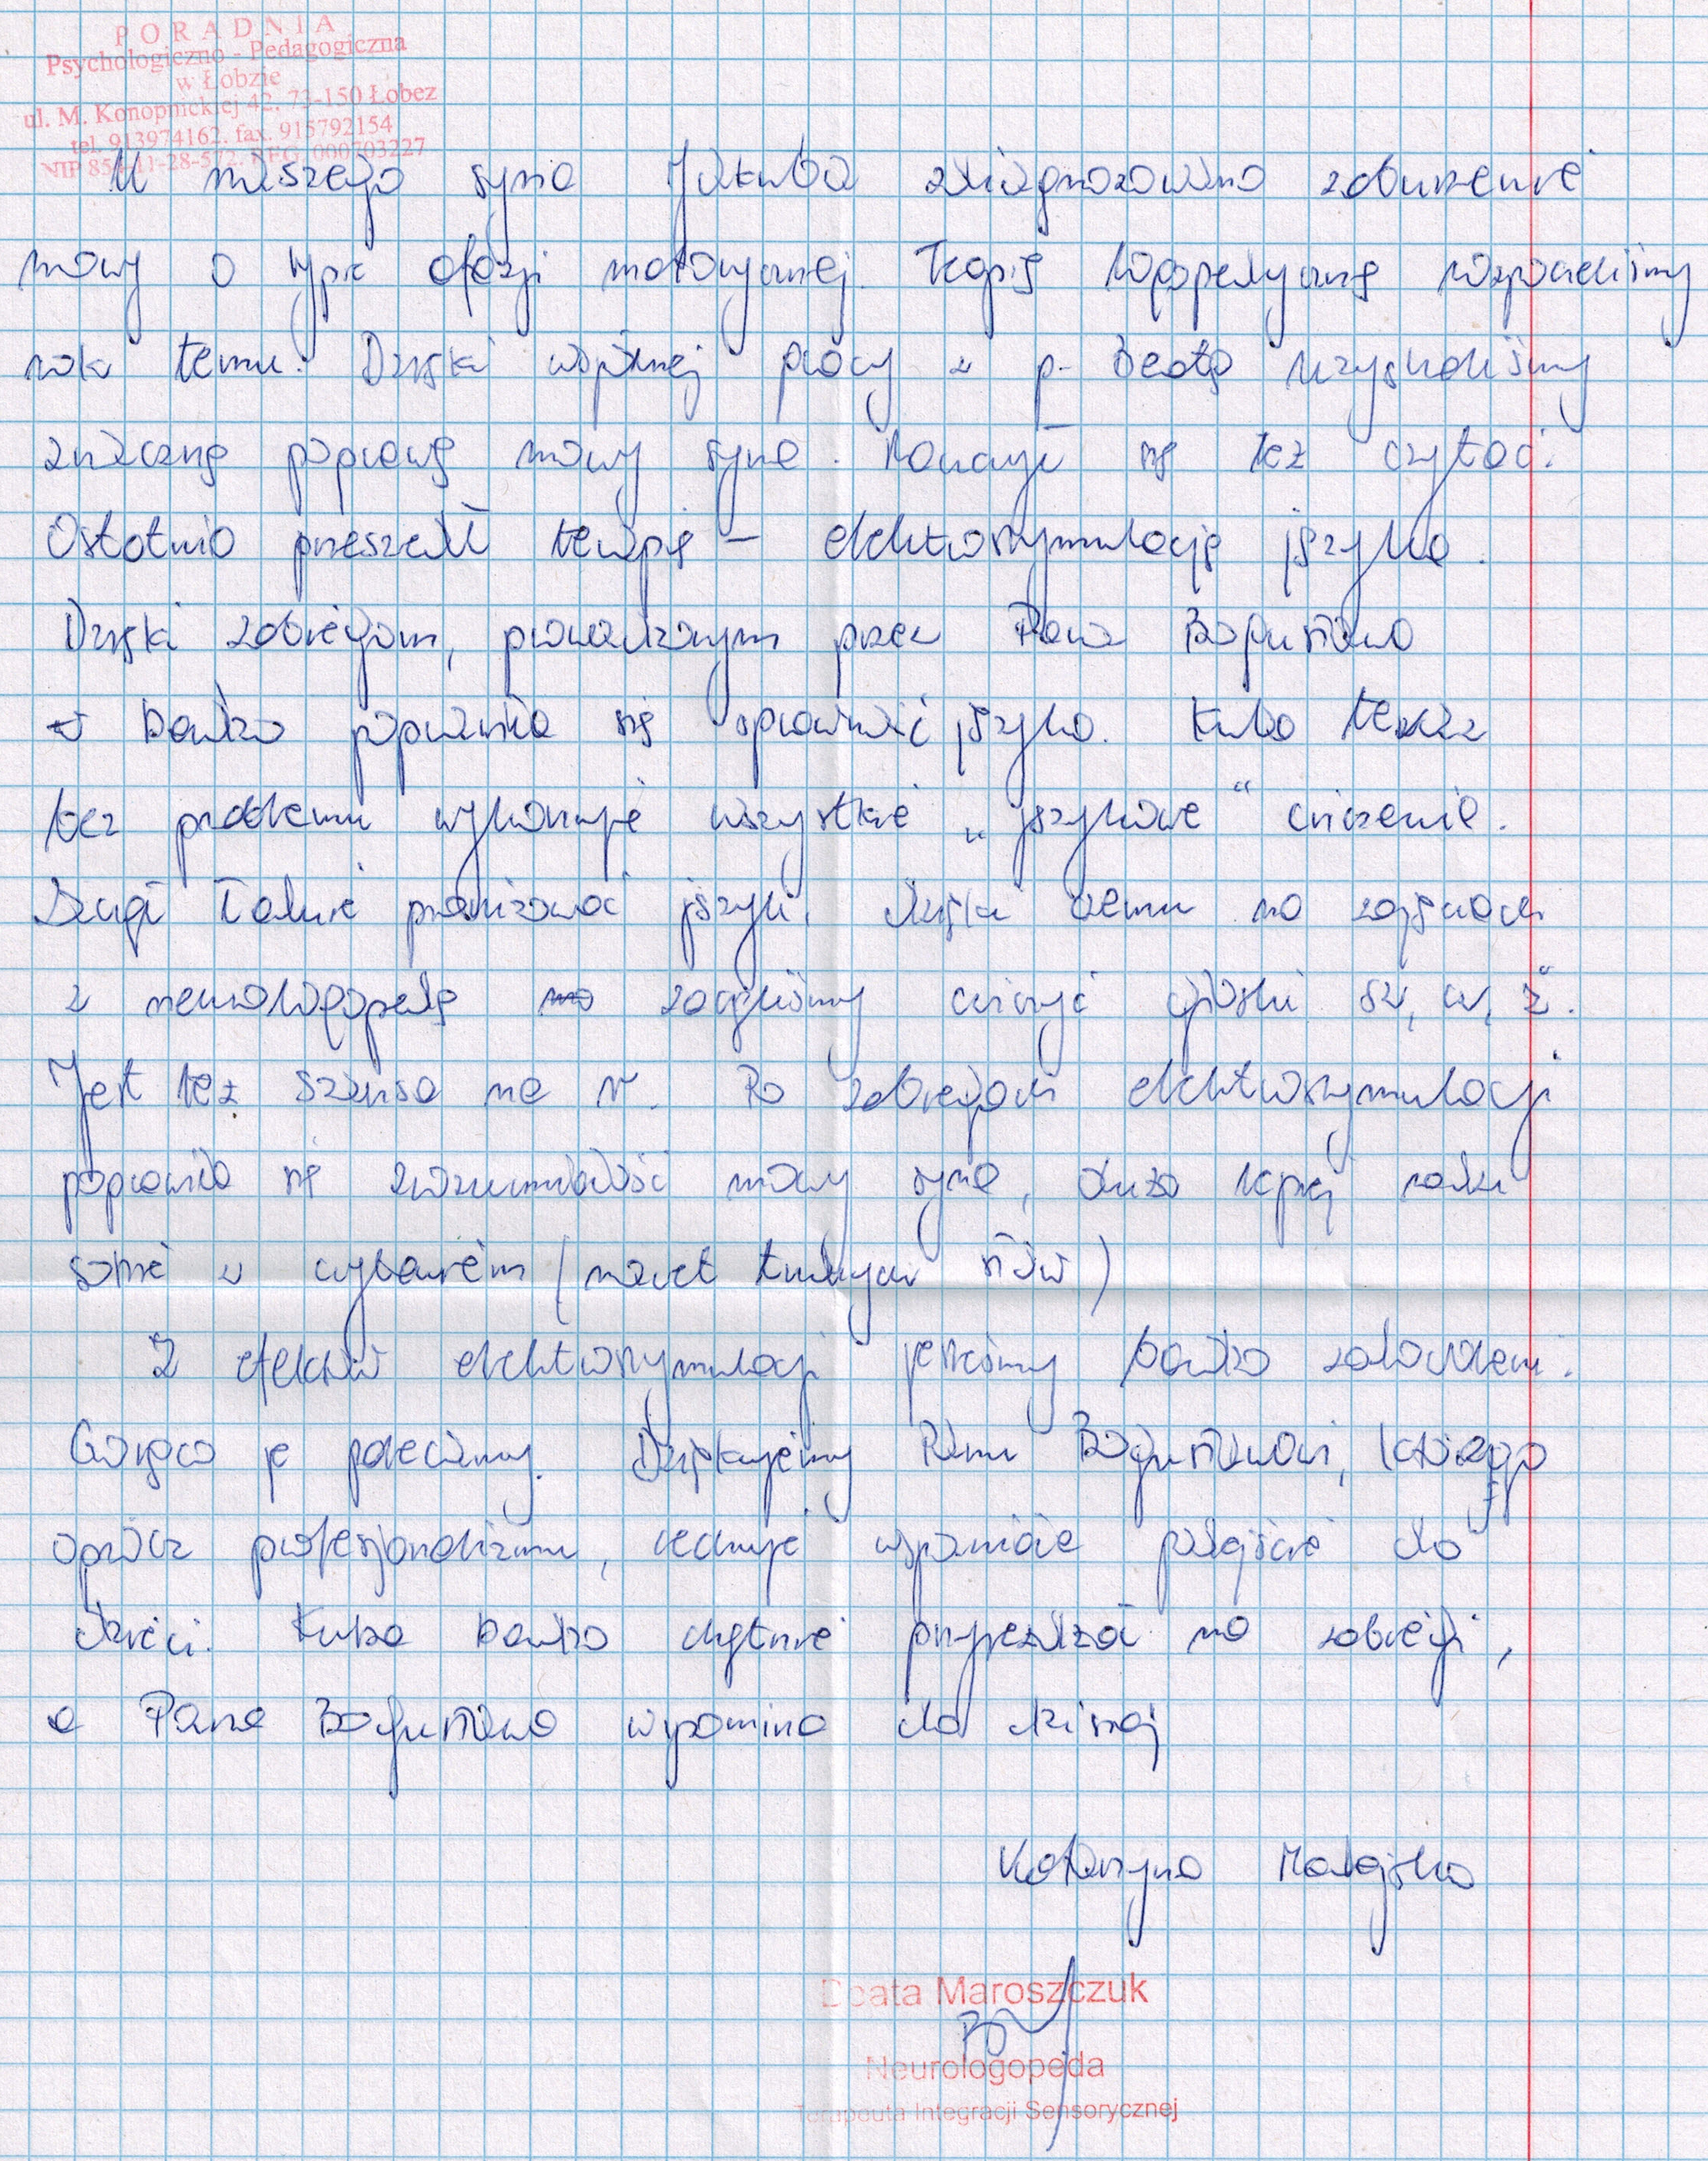 PORADNIA
Psychologiczno - Pedagogiczna
w Łobzie
ul. M. Konopnickiej 42, 73-150 Łobez
tel. 913974162, fax. 915792154
NIP 854-11-28-572. REG. 000703227
U naszego syna Jakuba zdiagnozowano zaburzenie
mowy o typie afazji motorycznej. Terapię logopedyczną rozpoczeliśmy
rok temu. Dzięki wspólnej pracy z p. Beatą uzyskaliśmy
znaczną poprawę mowy syna. Nauczył się też czytać.
Ostatnio przeszedł terapię - elektrostymulację języka.
Dzięki zabiegom, prowadzonym przez Pana Bogusława
bardzo poprawiła się sprawność języka. Kuba teraz
bez problemu wykonuje wszystkie "językowe" ćwiczenia.
ładnie pionizować język, dzięki czemu na zajęciach
z neurologopedą zaczęliśmy ćwiczyć głoski sz, cz, ż.
Jest też szansa na r. Po zabiegach elektrostymulacji
poprawiła się zrozumiałość mowy syna, dużo lepiej radzi
sobie z czytaniem (nawet trudnych słów)
Z efektów elektrostymulacji jesteśmy bardzo zadowoleni.
Gorąco je polecamy. Dziękujemy Panu Bogusławowi, którego
oprócz profesjonalizmu, cechuje wspaniałe podejście do
dzieci. Kuba bardzo chętnie przyjeżdżał na zabiegi,
a Pana Bogusława wspomina do dzisiaj
Katarzyna
Beata Maroszczuk
Neurologopeda
Terapeuta Integracji Sensorycznej